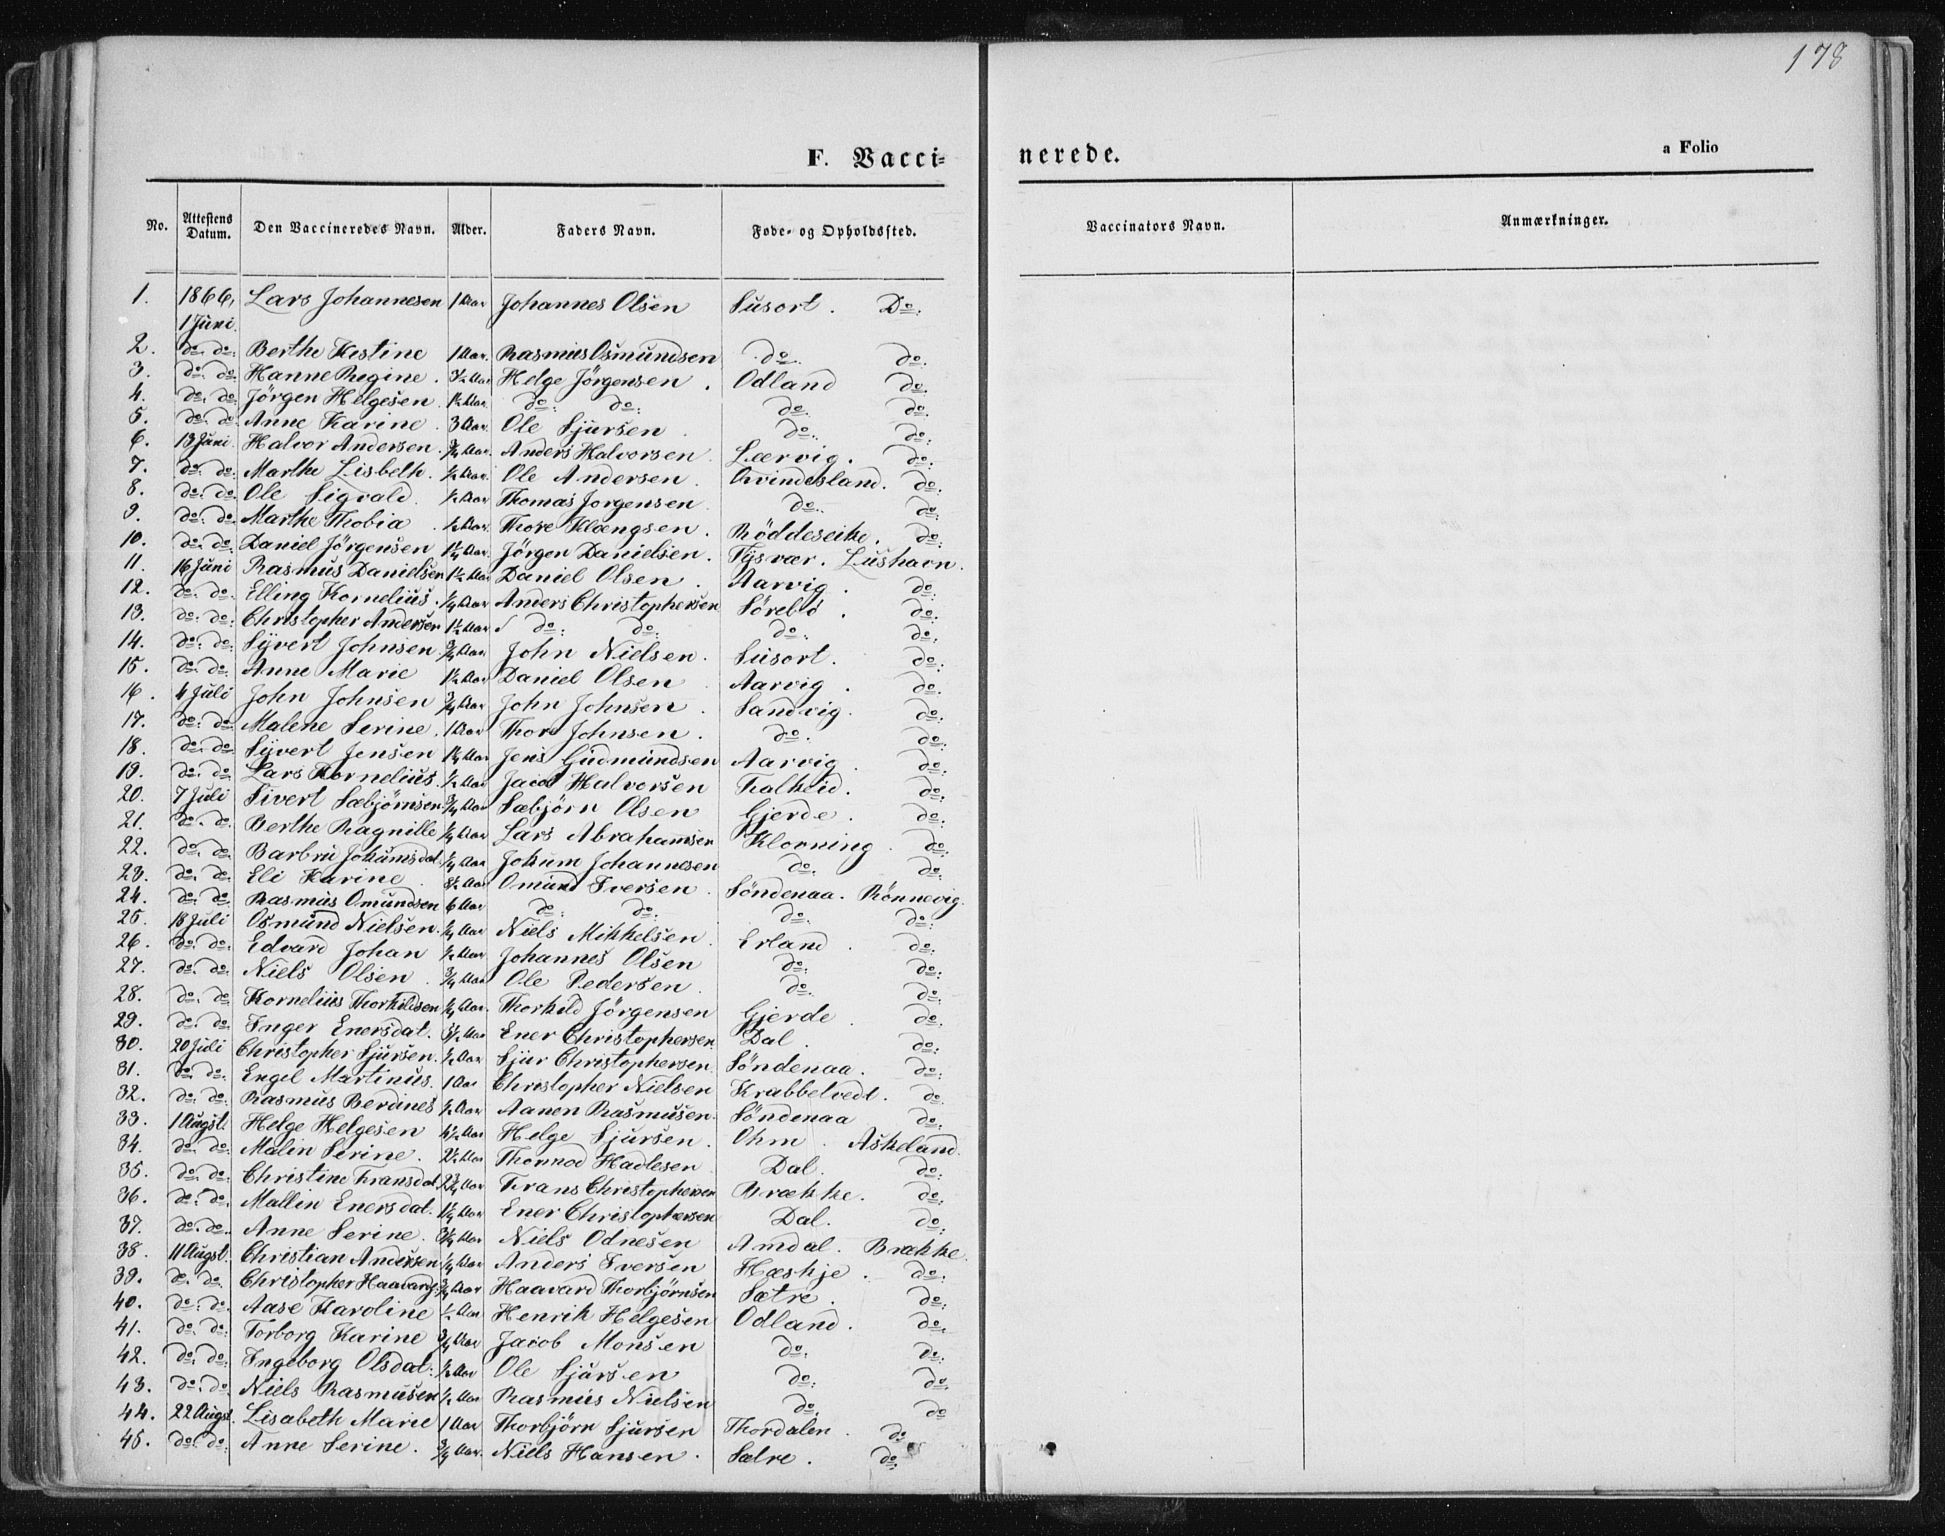 178
F. Vacci-
nerede.
a Folio
No. Attestens Datum. Den Vaccineredes Navn. Alder. Faders Navn. Føde- og Opholdssted. Vaccinators Navn. Anmærkninger.
1. 1866, 1 Juni. Lars Johannesen 1 Aar Johannes Olsen Susort. Do:
2. do. do: Berthe Kestine 1 Aar. Rasmus Osmundsen do. do.
3. do. do. Hanne Regine. 3/4 Aar Helge Jörgensen. Odland do.
4. do. do: Jörgen Helgesen 1½ Aar. do: do: do. do.
5. do. do: Anne Karine. 3 Aar. Ole Sjursen do. do:
6. 13 Juni. Halvor Andersen. 3/4 Aar. Anders Halvorsen Leervig. do:
7. do: do: Marthe Lisbeth. ½ Aar. Ole Andersen. Qvindesland. do:
8. do: do: Ole Sigvald. ½ Aar Thomas Jorgensen do. do:
9. do: do. Marthe Thobia. ½ Aar. Thore Klængsen. Röddeseike. do:
10. do: do. Daniel Jörgensen 1¼ Aar. Jörgen Danielsen. Tysvær. Lushavn.
11. 16 Juni Rasmus Danielsen 1½ Aar Daniel Olsen. Aarvig. do:
12. do: do. Elling Kornelius. ¼ Aar Anders Christophersen Sörebö. do:
13. do: do: Christopher Andersen 1½ Aar do: do: do: do:
14. do: do: Syvert Johnsen 3/4 Aar. John Nielsen. Susort. do:
15. do: do. Anne Marie 1½ Aar. Daniel Olsen Aarvig. do.
16. 4 Juli John Johnsen 3/4 Aar John Johnsen. Sandvig. do:
17. do: do. Malene Serine. 1 Aar Thore Johnsen. do. do:
18. do. do. Syvert Jensen 1¼ Aar Jens Gudmundsen Aarvig. do:
19. do. do Lars Kornelius. ½ Aar Jacob Halvorsen Falkeid. do:
20. 7 Juli Sivert Sæbjörnsen 3/4 Aar Sæbjörn Olsen Gjerde. do:
21. do. do Berthe Ragnille ¼ Aar Lars Abrahamsen Klovning. do:
22. do. do. Barbru Jokumsdat. ¼ Aar Jokum Johannesen do: do:
23. do: do: Eli Karine 8½ Aar Omund Iversen. Söndenaa. Rönnevig.
24. do. do. Rasmus Omundsen 6 Aar do: do: do: do:
25. 18 Juli Osmund Nielsen. ¼ Aar Niels Mikkelsen. Erland. do:
26. do: do: Edvard Johan ½ Aar Johannes Olsen do: do:
27. do. do. Niels Olsen. 3/4 Aar Ole Pedersen. do: do:
28. do. do Kornelius Thorkildsen ¼ Aar. Thorkild Jörgensen Gjerde. do:
29. do: do Inger Enersdat. 3½ Aar Ener Christophersen Dal. do:
30. 20 Juli Christopher Sjursen. ½ Aar Sjur Christophersen Söndenaa. do:
31. do. do: Engel Martinus. 1 Aar Christopher Nielsen Krabbetvedt. do.
32. do: do: Rasmus Berdines ½ Aar Aanen Rasmusen. Söndenaa do:
33. 1 Augst. Helge Helgesen 4½ Aar Helge Sjursen. Ohm. Askeland.
34. do: do: Malin Serine. 2½ Aar Thormod Hadlesen Dal. do:
35. do: do: Christine Fransdat. 2¾ Aar Frans Christophersen Brække. do:
36. do: do. Mallin Enersdat. 1½ Aar Ener Christophersen Dal. do:
37. do: do.. Anne Serine. 3¼ Aar Niels Odnesen Amdal. Brække.
38. 11 Augst. Christian Andersen ¼ Aar Anders Iversen Hæskje. do:
39. do. do. Christopher Haavards. 3/4 Aar Haavard Thorbjörnsen Sætre. do:
40. do: do: Aase Karoline ½ Aar Henrik Helgesen Odland. do:
41. do: do: Torborg Karine 3/4 Aar Jacob Monsen do: do:
42. do: do: Ingeborg Olsdat: ½ Aar Ole Sjursen do: do:
43. do: do. Niels Rasmusen ½ Aar Rasmus Nielsen do: do
44. 22 Augst. Lisabeth Marie 1 Aar Thorbjörn Sjursen Thordalen. do
45. do: do: Anne Serine. 3/4 Aar. Niels Hansen. Sætre. do: